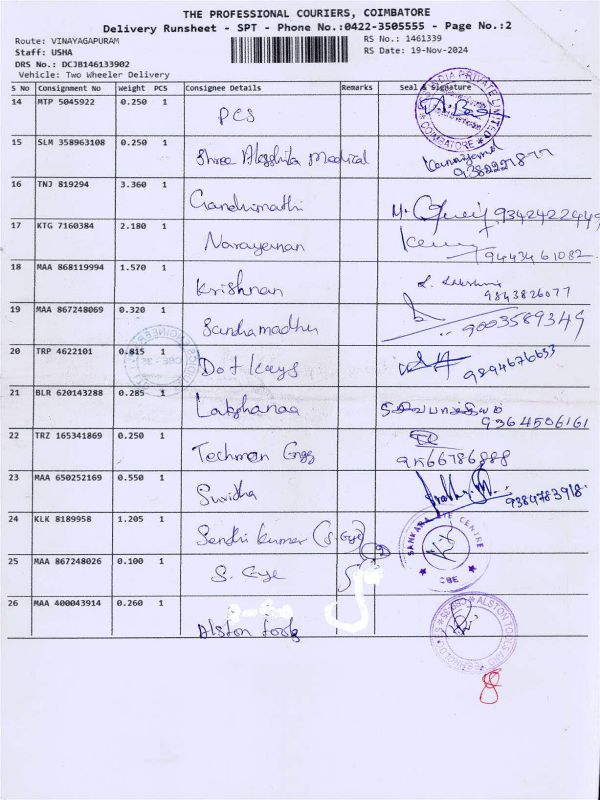 THE PROFESSIONAL COURIERS, COIMBATORE
Delivery Runsheet - SPT - Phone No.:0422-3505555 - Page No.:2
Route: VINAYAGAPURAM RS No.: 1461339
Staff: USHA RS Date: 19-Nov-2024
DRS No.: DCJB146133902
Vehicle: Two Wheeler Delivery
S No Consignment No Weight PCS Consignee Details Remarks Seal & Signature
14 MTP 5045922 0.250 1 PCS
PRIVATE LIMITED COIMBATORE
15 SLM 358963108 0.250 1 Medical
16 TNJ 819294 3.360 1 Gandhimathi 9342422449
17 KTG 7160384 2.180 1 Narayanan 9443461082
18 MAA 868119994 1.570 1 Krishnan 9843826077
19 MAA 867248069 0.320 1 9003589349
20 TRP 4622101 0.815 1 Dot Kays 9894676633
21 BLR 620143288 0.285 1 Lakshanaa 9364506161
22 TRZ 165341869 0.250 1 Techmen Engg 9566786888
23 MAA 650252169 0.550 1 Suvidha 9384783918
24 KLK 8189958 1.205 1 Senthi Kumar (S. Eye)
SANKARA EYE CENTRE CBE
25 MAA 867248026 0.100 1 S. Eye
26 MAA 400043914 0.260 1 Alston tools
ALSTON TOOLS AND TECHNOLOGIES